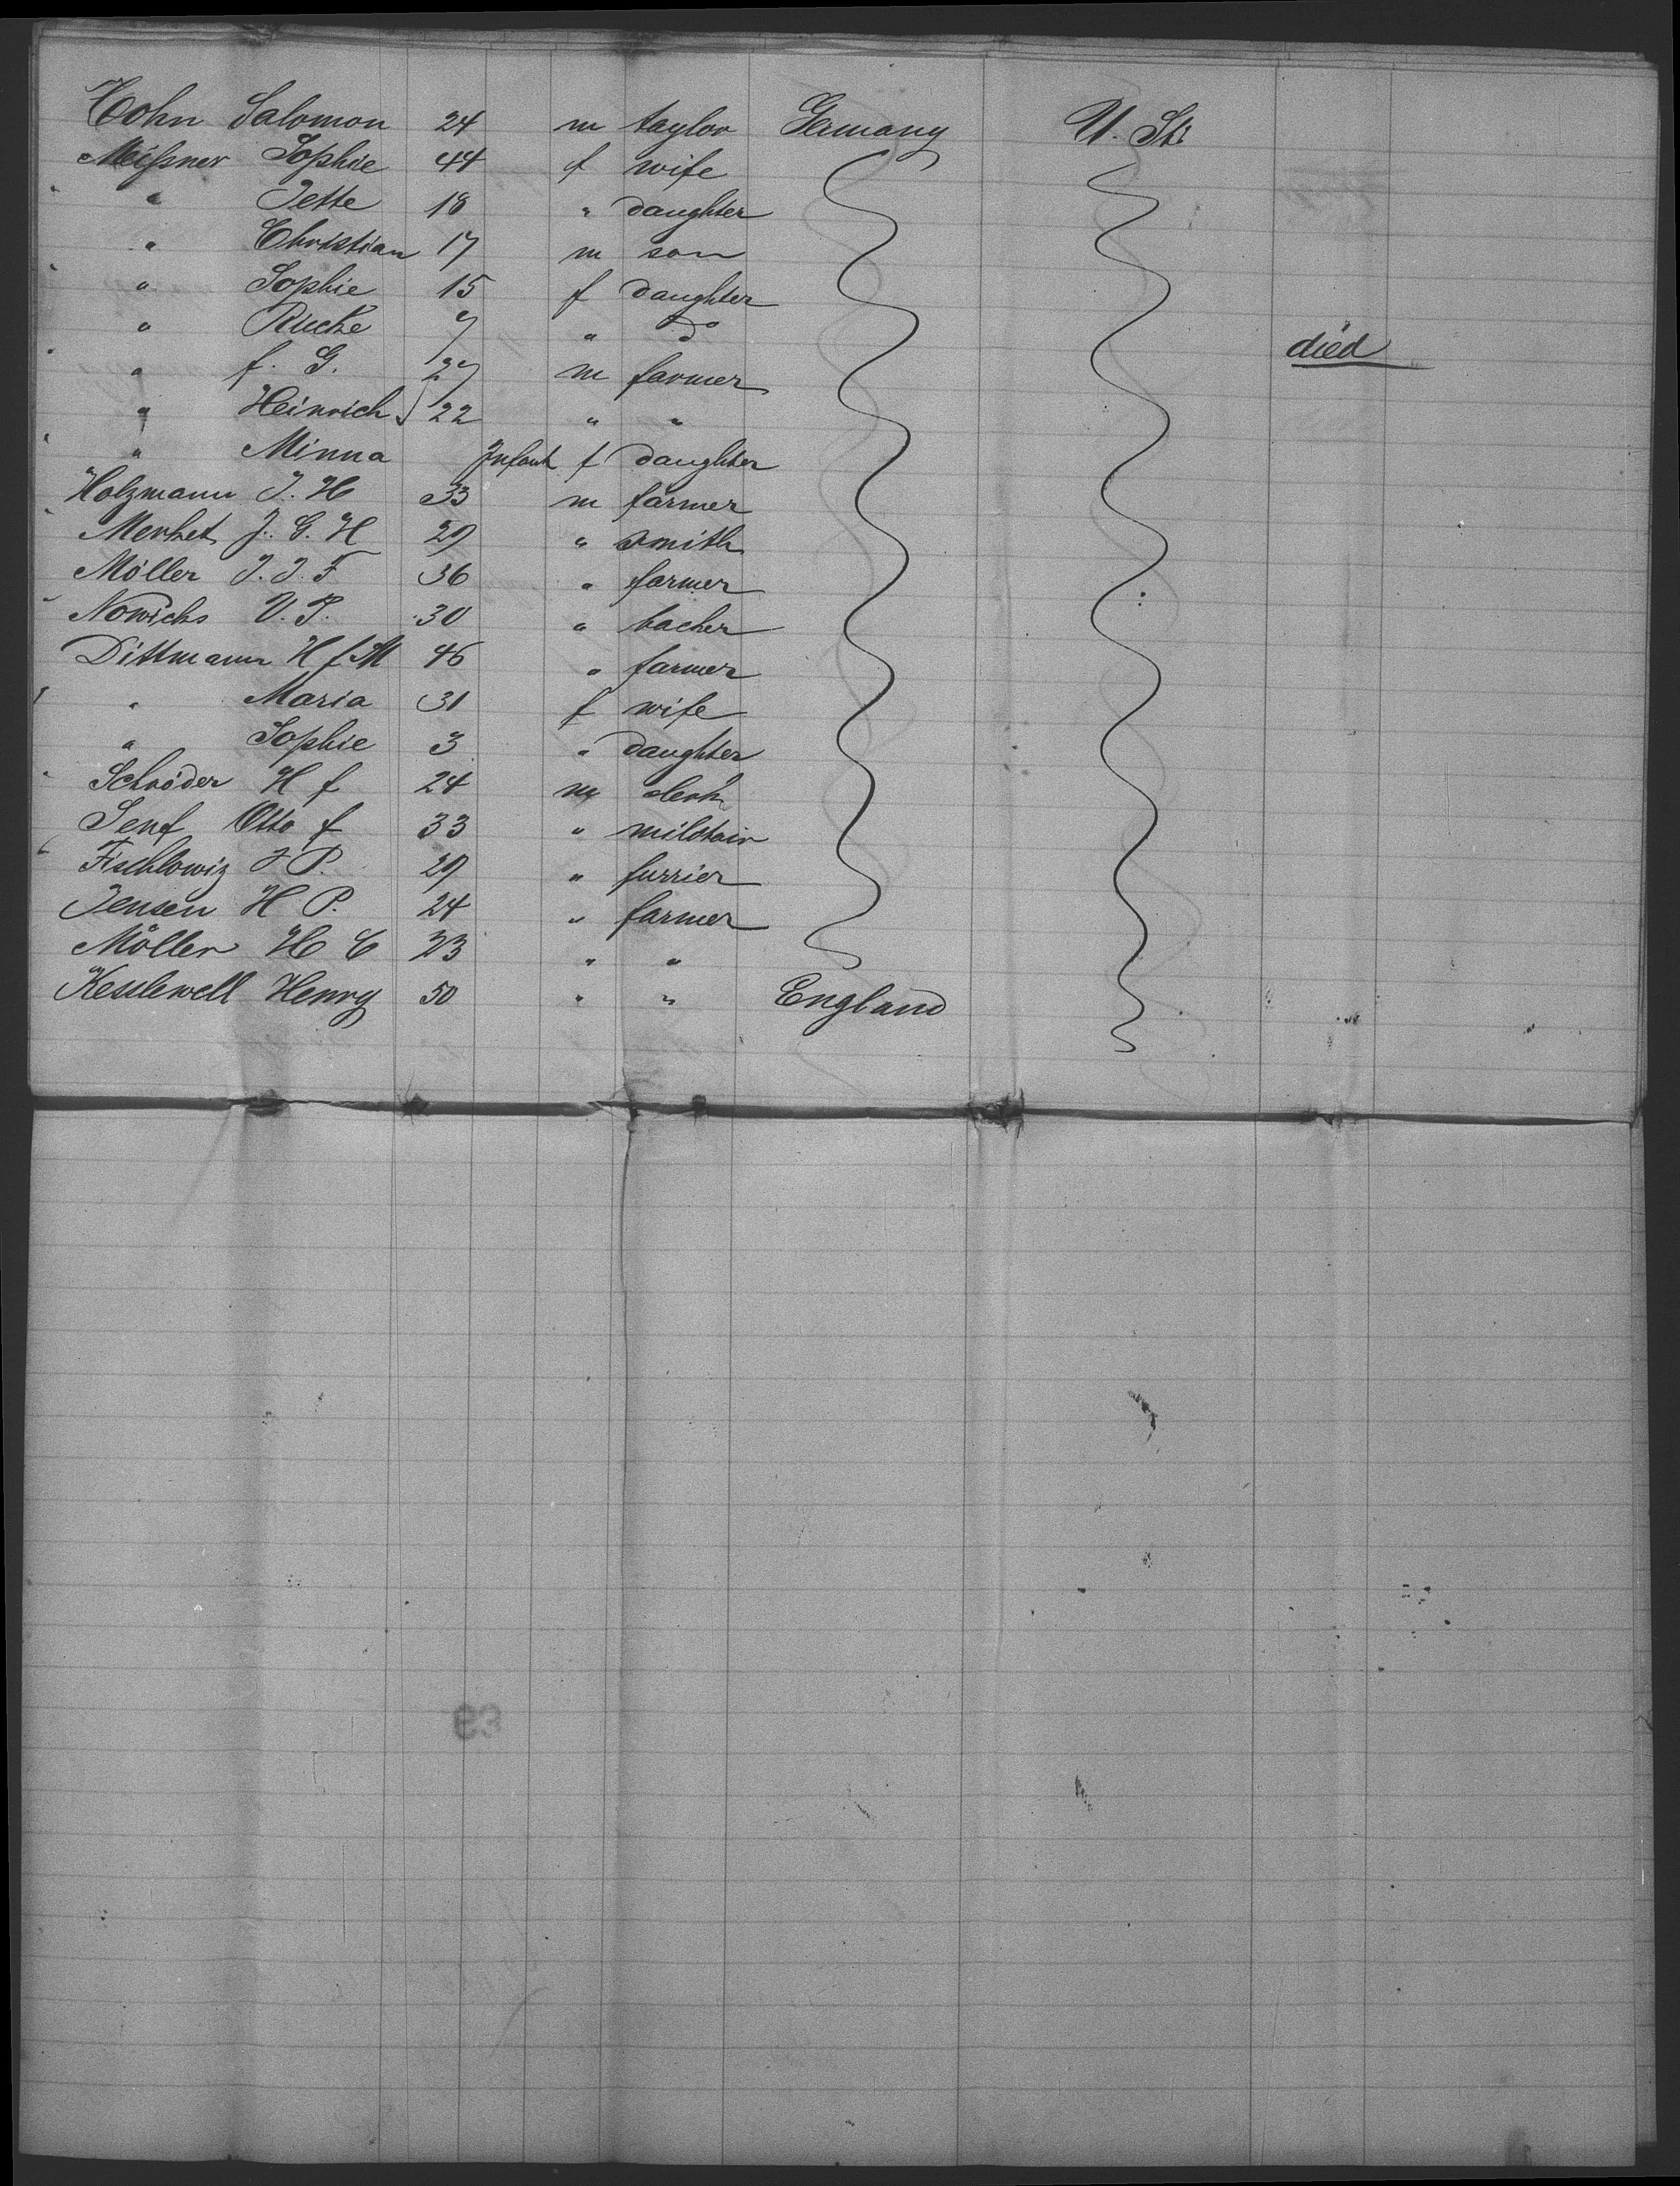 Cohn Salomon 24 m taylor Germany U. St.
Meißner Sophie 44 f wife
" Jette 18 " daughter
" Christian 17 m son
" Sophie 15 f daughter
" Rieke 7 " do died
" f. G. 27 m farmer
" Heinrich 22 " "
" Minna Infant f daughter
Holzmann J. H 33 m farmer
Merket J. G. H 29 " smith
Möller J. J. F 36 " farmer
Nowichs V. P. 30 " backer
Dittmann H f M 46 " farmer
" Maria 31 f wife
" Sophie 3 " daughter
Schröder H f 24 m clerk
Senf Otto f 33 " militair
Fischlowiz J P. 29 " furrier
Jensen H P. 24 " farmer
Möller H C 23 " "
Henry 50 " " England